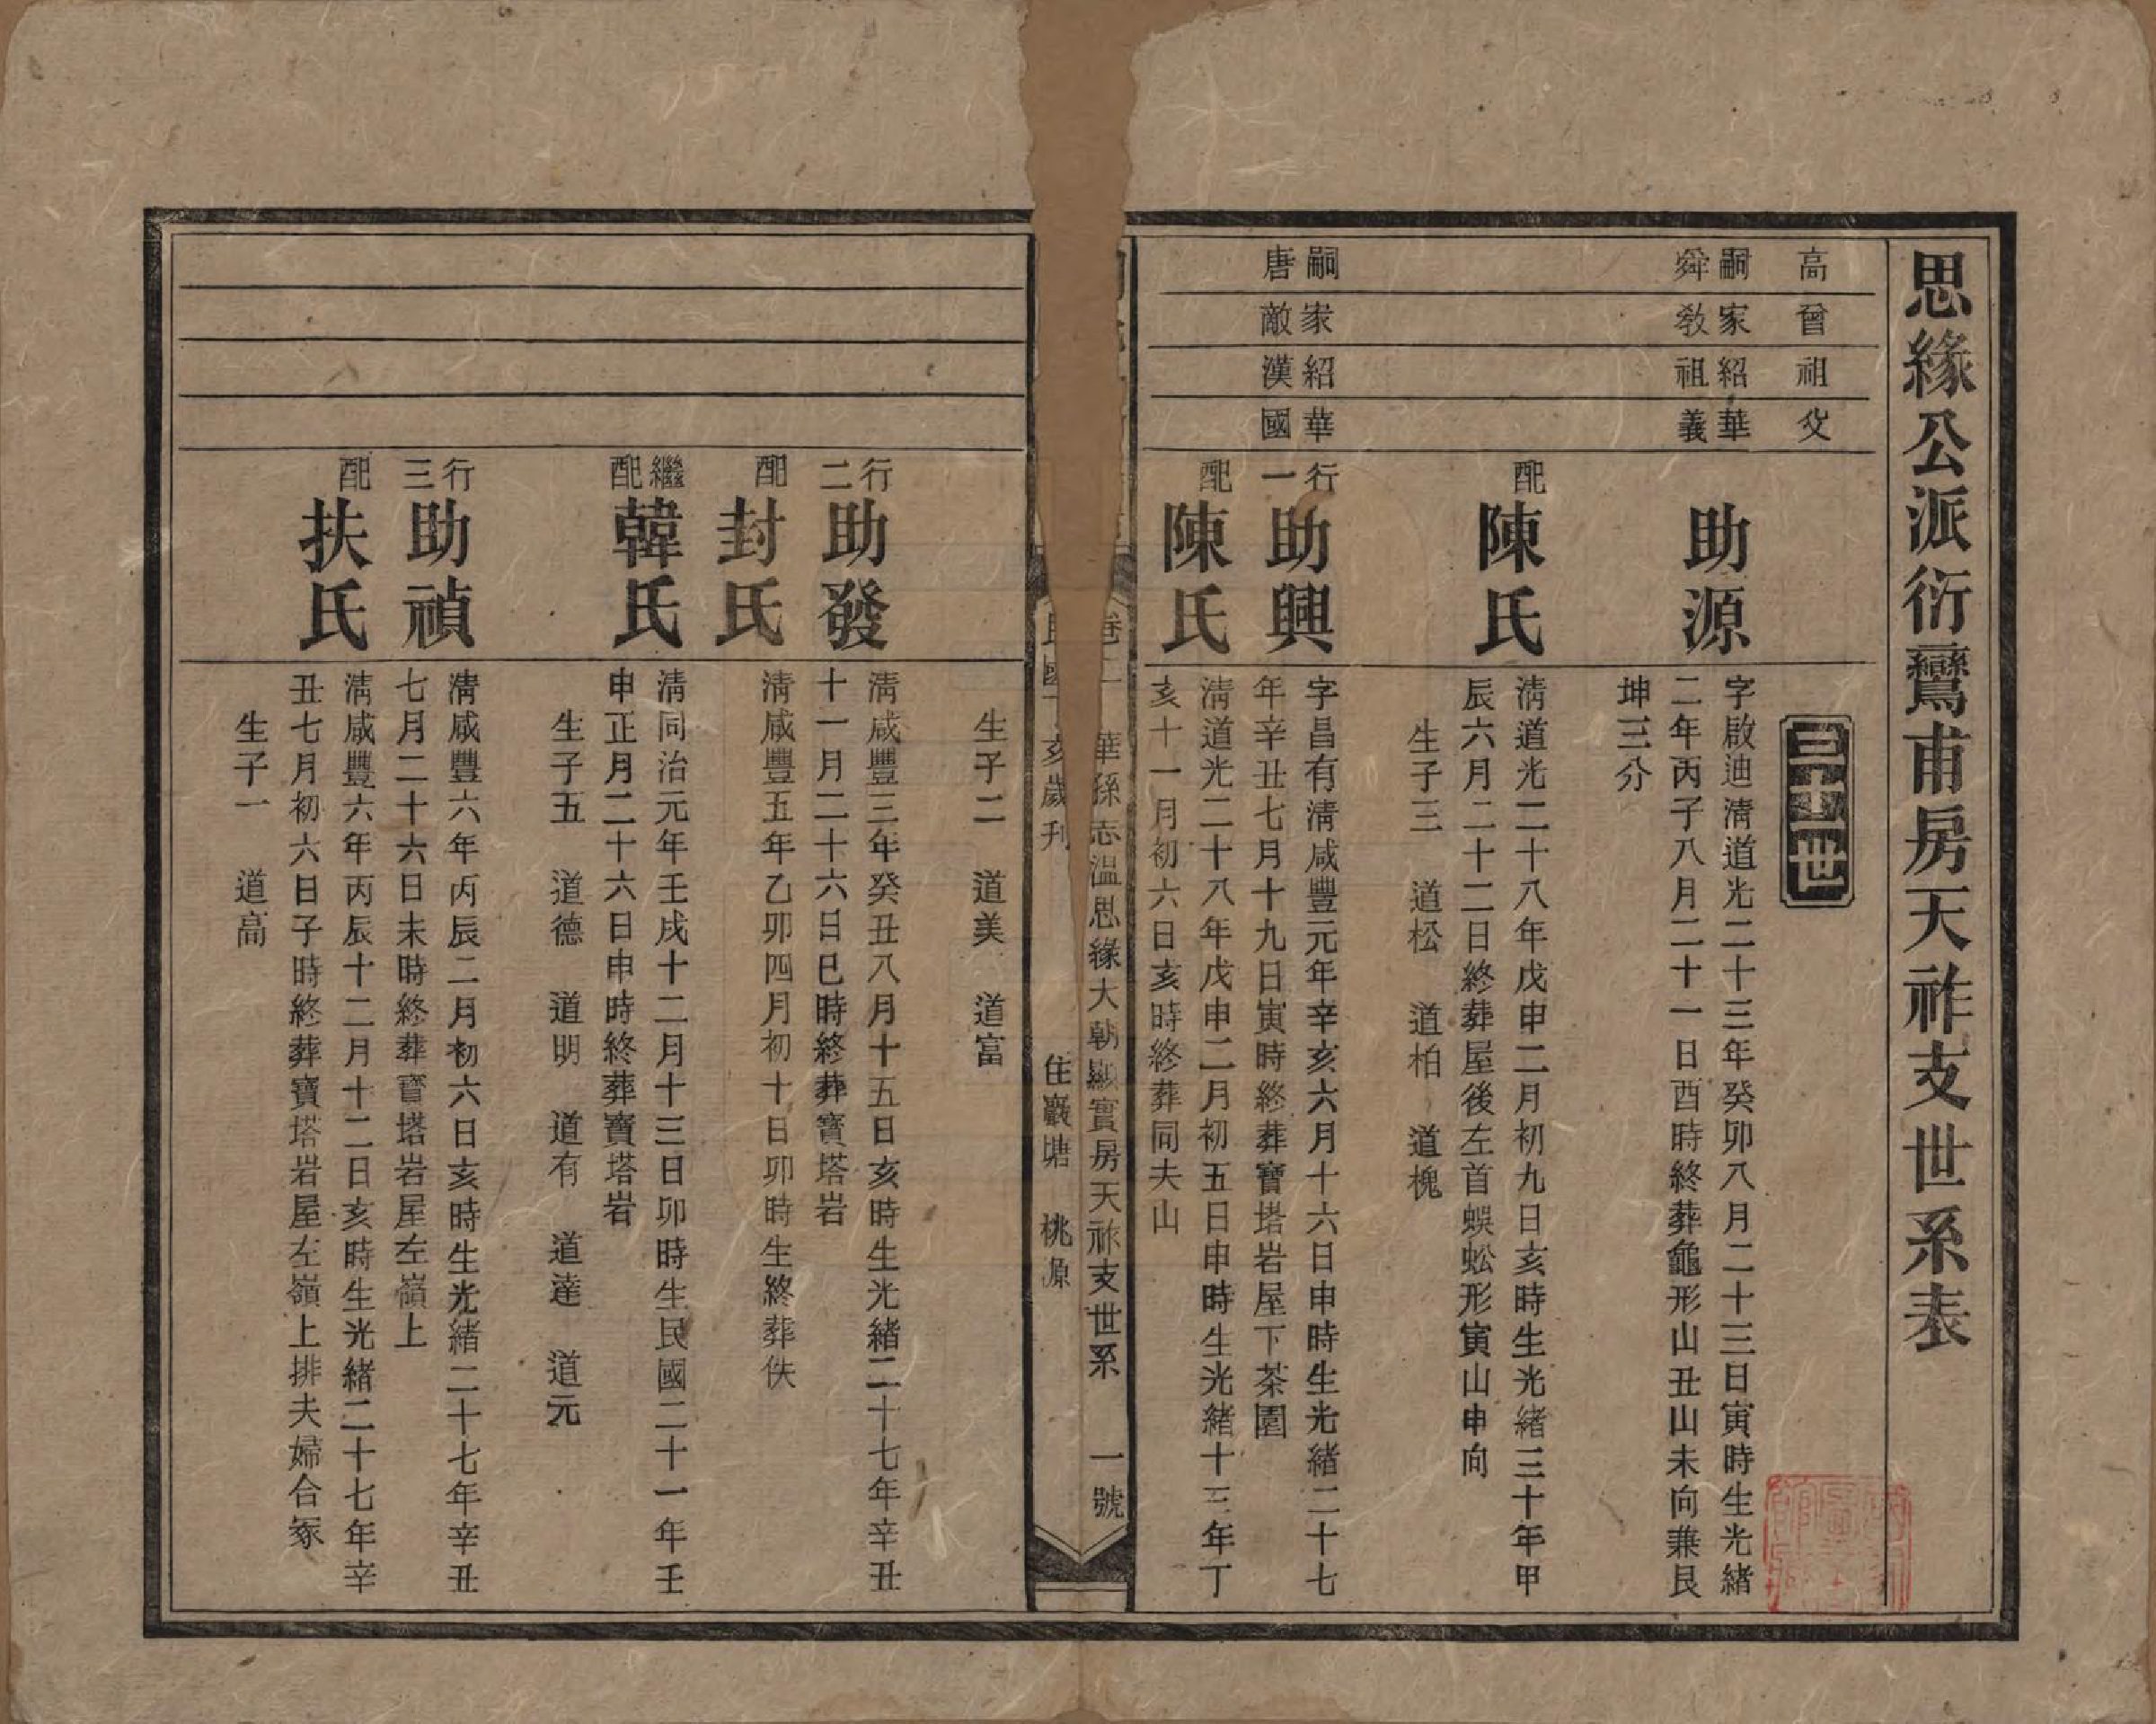 思緣公派衍鸞甫房天祚支世系表
高曾祖父
三十世
嗣家紹華
舜敎祖義
助源
字啟迪淸道光二十三年癸卯八月二十三日寅時生光緒
二年丙子八月二十一日酉時終葬龜形山丑山未向兼艮
坤三分
配
陳氏
淸道光二十八年戊申二月初九日亥時生光緒三十年甲
辰六月二十二日終葬屋後左首蜈蚣形寅山申向
生子三 道松 道柏 道槐
嗣家紹華
唐敵漢國
行一
助興
字昌有淸咸豐元年辛亥六月十六日申時生光緒二十七
年辛丑七月十九日寅時終葬寶塔岩屋下茶園
配
陳氏
淸道光二十八年戊申二月初五日申時生光緒十三年丁
亥十一月初六日亥時終葬同夫山
卷二 華孫志溫思緣大朝顯實房天祚支世系 一號
亥歲刊 住巖塘 桃源
生子二 道美 道富
行二
助發
淸咸豐三年癸丑八月十五日亥時生光緒二十七年辛丑
十一月二十六日巳時終葬寶塔岩
配
封氏
淸咸豐五年乙卯四月初十日卯時生終葬佚
繼配
韓氏
淸同治元年壬戌十二月十三日卯時生民國二十一年壬
申正月二十六日申時終葬寶塔岩
生子五 道德 道明 道有 道達 道元
行三
助禎
淸咸豐六年丙辰二月初六日亥時生光緒二十七年辛丑
七月二十六日未時終葬寶塔岩屋左嶺上
配
扶氏
淸咸豐六年丙辰十二月十二日亥時生光緒二十七年辛
丑七月初六日子時終葬寶塔岩屋左嶺上排夫婦合冢
生子一 道高